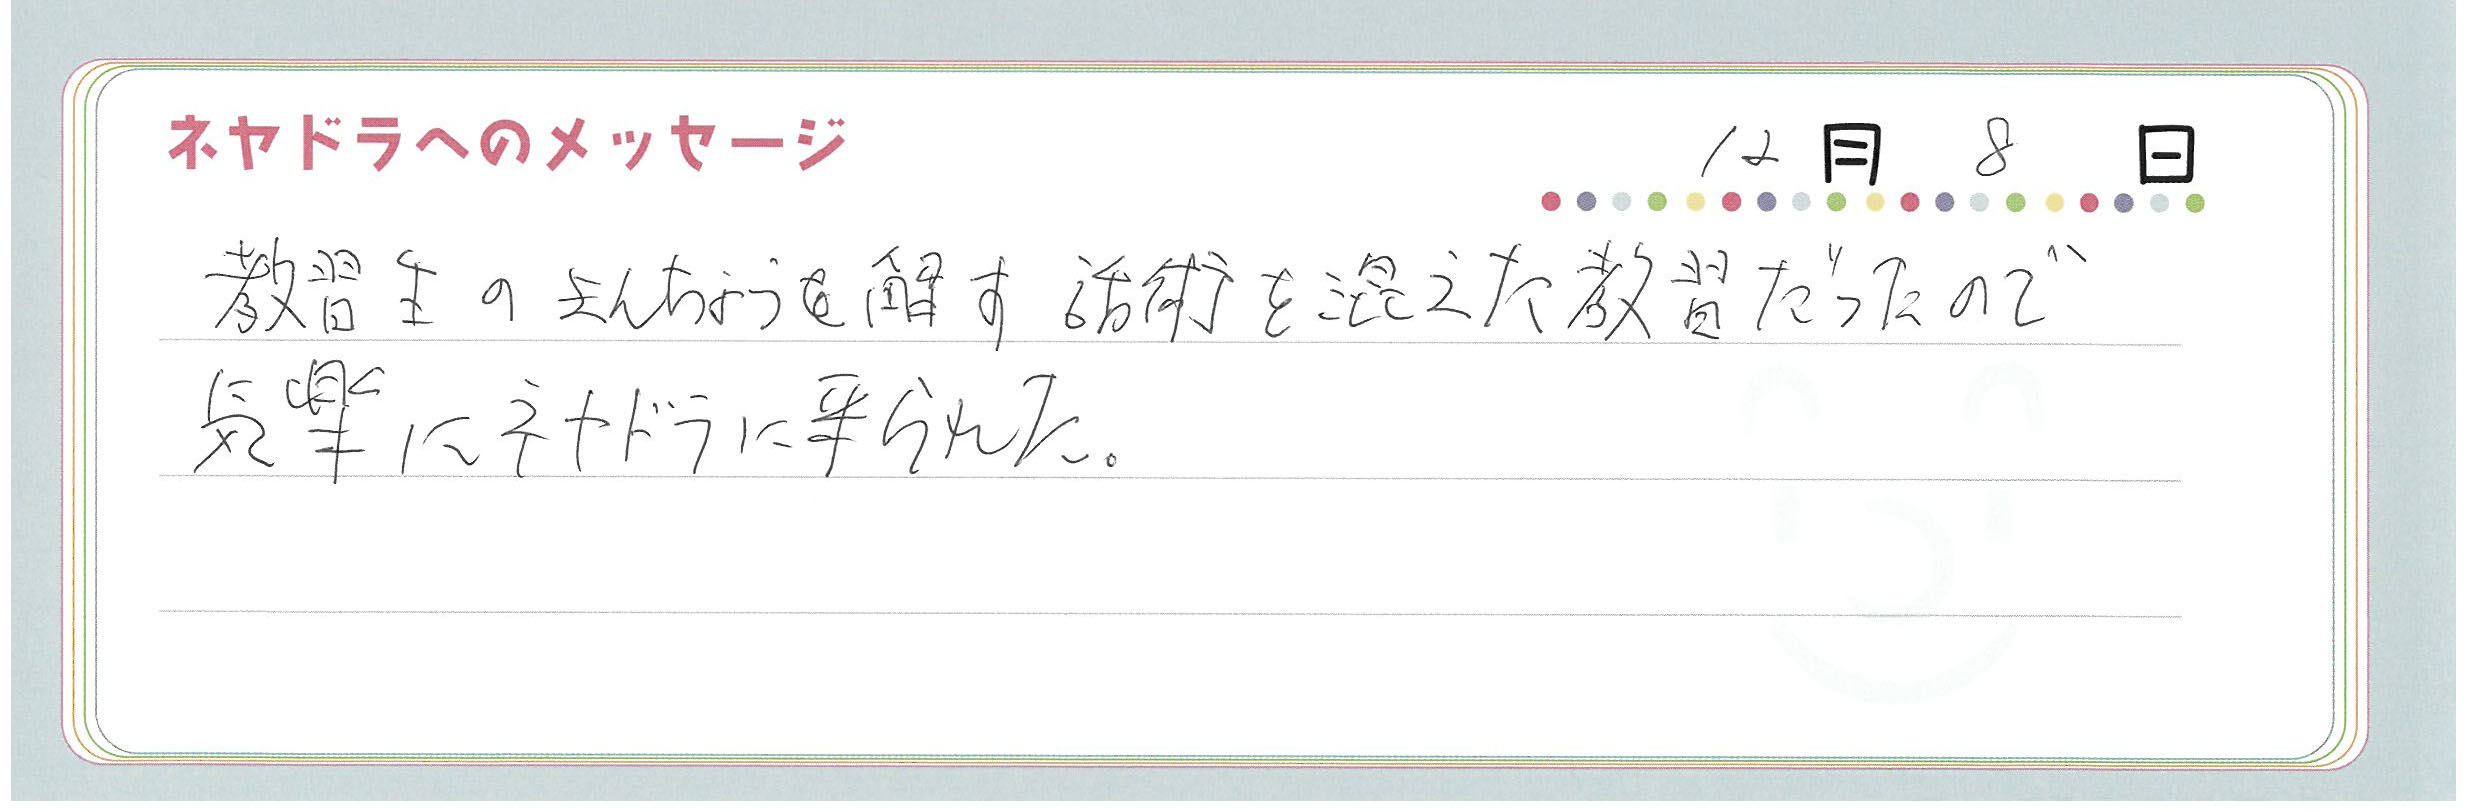 ネヤドラへのメッセージ
12月 8日
教習生のきんちょうを解す話術を混えた教習だったので
気楽にネヤドラに乗られた。